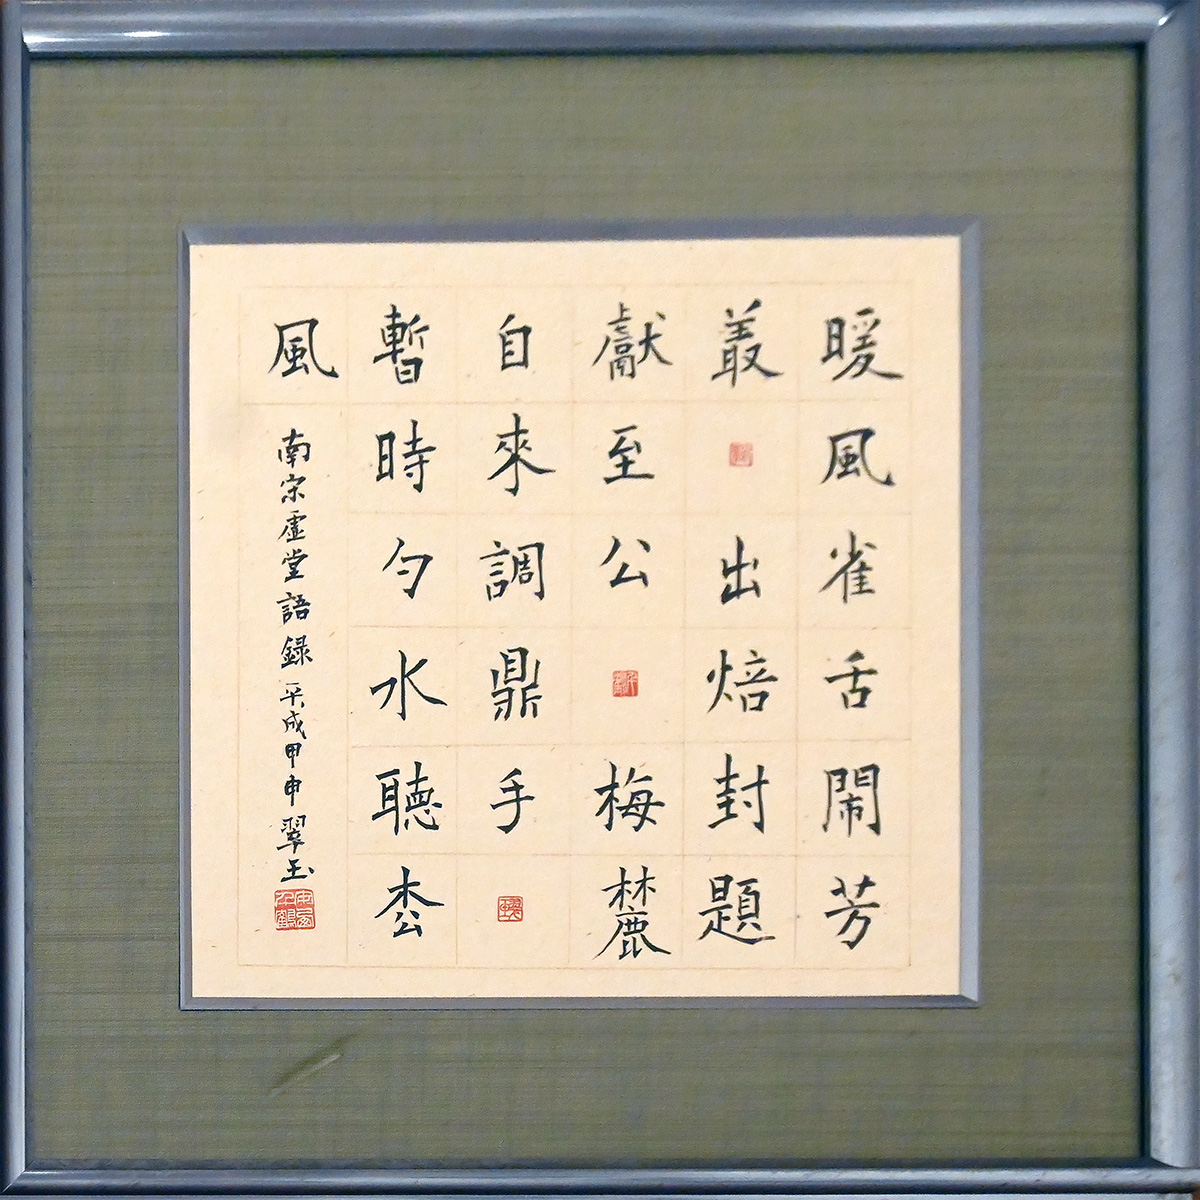 暖風雀舌鬧芳
叢出焙封題
獻至公梅麓
自來調鼎手
暫時勺水聽枩
風
南宋虚堂語録 平成甲申 翠玉